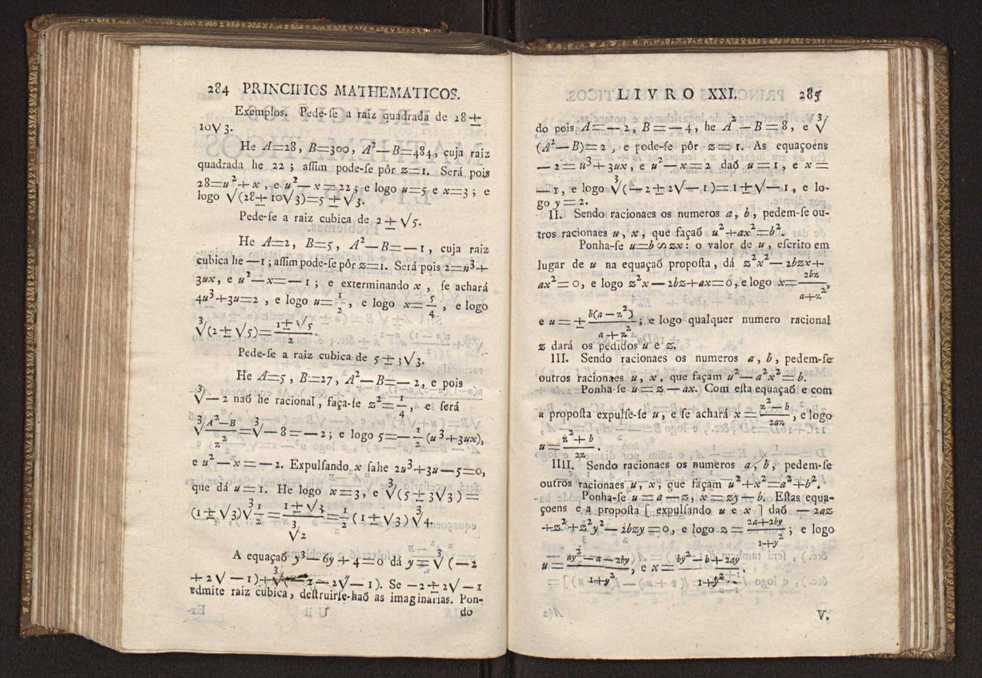 284 PRINCIPIOS MATHEMATICOS.
Exemplos. Pede-ſe a raiz quadrada de 28±
10√3.
He A=28, B=300, A²—B=484, cuja raiz
quadrada he 22; aſſim pode-ſe pôr z=1. Será pois
28=u²+x, e u²—x=22; e logo u=5 e x=3; e
logo √(28±10√3)=5±√3.
Pede-ſe a raiz cubica de 2±√5.
He A=2, B=5, A²—B=—1, cuja raiz
cubica he —1; aſſim pode-ſe pôr z=1. Será pois 2=u³+
3ux, e u²—x=—1; e exterminando x, ſe achará
4u³+3u=2, e logo u=1/2, e logo x=5/4, e logo
∛(2±√5)=(1±√5)/2.
Pede-ſe a raiz cubica de 5±3√3.
He A=5, B=27, A²—B=—2, e pois
∛—2 naõ he racional, faça-ſe z²=1/4, e ſerá
∛((A²—B)/z²)=∛—8=—2; e logo 5=—1/2(u³+3ux),
e u²—x=—2. Expulſando x ſahe 2u³+3u—5=0,
que dá u=1. He logo x=3, e ∛(5±3√3)=
(1±√3)∛1/2=(1±√3)/∛2=1/2(1±√3)∛4.
A equaçaõ y³—6y+4=0 dá y=∛(—2
+2√—1)+∛(—2—2√—1). Se —2±2√—1
admite raiz cubica, deſtruirſe-haõ as imaginarias. Pon-
do
LIVRO XXI. 285
do pois A=—2, B=—4, he A²—B=8, e ∛
(A²—B)=2, e pode-ſe pôr z=1. As equaçoens
—2=u³+3ux, e u²—x=2 daõ u=1, e x=
—1, e logo ∛(—2±2√—1)=1±√—1, e lo-
go y=2.
II. Sendo racionaes os numeros a, b, pedem-ſe ou-
tros racionaes u, x, que façaõ u²+ax²=b².
Ponha-ſe u=b∽zx: o valor de u, eſcrito em
lugar de u na equaçaõ propoſta, dá z²x²—2bzx+
ax²=0, e logo z²x—2bz+ax=0, e logo x=2bz/(a+z²),
e u=±b(a—z²)/(a+z²); e logo qualquer numero racional
z dará os pedidos u e z.
III. Sendo racionaes os numeros a, b, pedem-ſe
outros racionaes u, x, que façam u²—a²x²=b.
Ponha-ſe u=z—ax. Com eſta equaçaõ e com
a propoſta expulſe-ſe u, e ſe achará x=(z²—b)/2az, e logo
u=(z²+b)/2z.
IIII. Sendo racionaes os numeros a, b, pedem-ſe
outros racionaes u, x, que façam u²+x²=a²+b².
Ponha-ſe u=a—z, x=zy—b. Eſtas equa-
çoens e a propoſta [expulſando u e x] daõ —2az
+z²+z²y²—2bzy=0, e logo z=(2a+2by)/(1+y²); e logo
u=(ay²—a—2by)/(1+y²), e x=(by²—b+2ay)/(1+y²).
V.